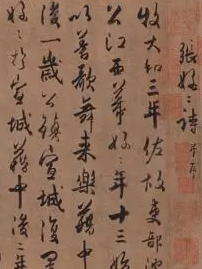 張好〻詩 并序
牧大和三年佐故吏部沈
公江西幕好〻年十三始
以善歌舞來樂籍中
後一歲公鎮宣城復置
好〻於宣城籍中後二年